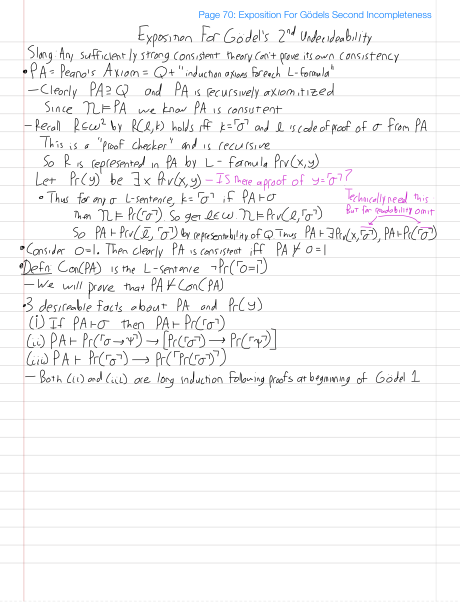 Page 70: Exposition For Gödels Second Incompleteness
Exposition For Gödel's 2nd Undecideability
Slang: Any sufficiently strong consistent theory can't prove its own consistency
• PA = Peano's Axiom = Q + "induction axioms for each L-formula"
– Clearly PA ⊇ Q and PA is recursively axiomitized
Since 𝒩 ⊨ PA we know PA is consistent
– Recall R ⊆ ω² by R(l,k) holds iff k=⌜σ⌝ and l is code of proof of σ from PA
This is a "proof checker" and is recursive
So R is represented in PA by L-formula Prv(x,y)
Let Pr(y) be ∃x Prv(x,y) – Is there a proof of y=⌜σ⌝?
• Thus for any σ L-sentence, k=⌜σ⌝ if PA ⊢ σ
Technically need this
But for readability omit
then 𝒩 ⊨ Pr(⌜σ⌝) So get l∈ω. 𝒩 ⊨ Prv(l,⌜σ⌝)
So PA ⊢ Prv(l̅, ⌜σ⌝) by representability of Q Thus PA ⊢ ∃Prv(x,⌜σ⌝), PA ⊢ Pr(⌜σ⌝)
• Consider 0=1. Then clearly PA is consistent iff PA ⊬ 0=1
• Defn: Con(PA) is the L-sentence ¬Pr(⌜0=1⌝)
– We will prove that PA ⊬ Con(PA)
• 3 desireable facts about PA and Pr(y)
(i) If PA ⊢ σ then PA ⊢ Pr(⌜σ⌝)
(ii) PA ⊢ Pr(⌜σ → ψ⌝) → [Pr(⌜σ⌝) → Pr(⌜ψ⌝)]
(iii) PA ⊢ Pr(⌜σ⌝) → Pr(⌜Pr(⌜σ⌝)⌝)
– Both (ii) and (iii) are long induction following proofs at beginning of Gödel 1